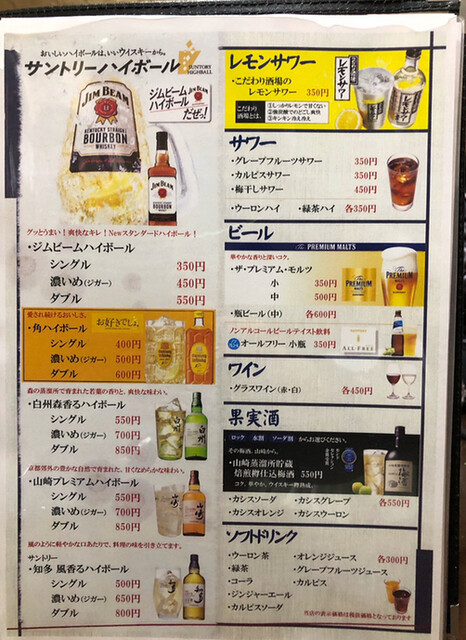 おいしいハイボールは、いいウイスキーから。
サントリーハイボール
SUNTORY
HIGHBALL
JIM BEAM
KENTUCKY STRAIGHT
BOURBON
WHISKEY
ジムビーム
ハイボール
だぜっ!
JIM BEAM
BOURBON
グッとうまい!爽快なキレ!Newスタンダードハイボール!
・ジムビームハイボール
シングル 350円
濃いめ(ジガー) 450円
ダブル 550円
愛され続けるおいしさ。
・角ハイボール
お好きでしょ。
シングル 400円
濃いめ(ジガー) 500円
ダブル 600円
森の蒸溜所で育まれた若葉の香りと、爽快な味わい。
・白州森香るハイボール
シングル 550円
濃いめ(ジガー) 700円
ダブル 850円
白州
京都郊外の豊かな自然で育まれた、甘くなめらかな味わい。
・山崎プレミアムハイボール
シングル 550円
濃いめ(ジガー) 700円
ダブル 850円
風のように軽やかな口あたりで、料理の味を引き立てます。
サントリー
・知多 風香るハイボール
シングル 500円
濃いめ(ジガー) 650円
ダブル 800円
レモンサワー
・こだわり酒場の
レモンサワー 350円
こだわり
酒場とは、
①しっかりレモンで甘くない
②強炭酸でのどごし爽快
③キンキン冷え冷え
レモンサワー
サワー
・グレープフルーツサワー 350円
・カルピスサワー 350円
・梅干しサワー 450円
・ウーロンハイ ・緑茶ハイ 各350円
ビール
The PREMIUM MALT'S
華やかな香りと深いコク。
・ザ・プレミアム・モルツ
小 350円
中 500円
・瓶ビール(中) 各600円
The
PREMIUM
MALT'S
ノンアルコールビールテイスト飲料
オールフリー 小瓶 350円
ALL-FREE
ワイン
・グラスワイン(赤・白) 各450円
果実酒
ロック 水割 ソーダ割 からお選びください。
その梅酒、山崎から。
・山崎蒸溜所貯蔵
焙煎樽仕込梅酒 550円
コク、華やか。ウイスキー樽熟成。
・カシスソーダ ・カシスグレープ
・カシスオレンジ ・カシスウーロン
各550円
ソフトドリンク
・ウーロン茶 ・オレンジジュース 各300円
・緑茶 ・グレープフルーツジュース
・コーラ ・カルピス
・ジンジャーエール
・カルピスソーダ
当店の表示価格は税抜価格となっております